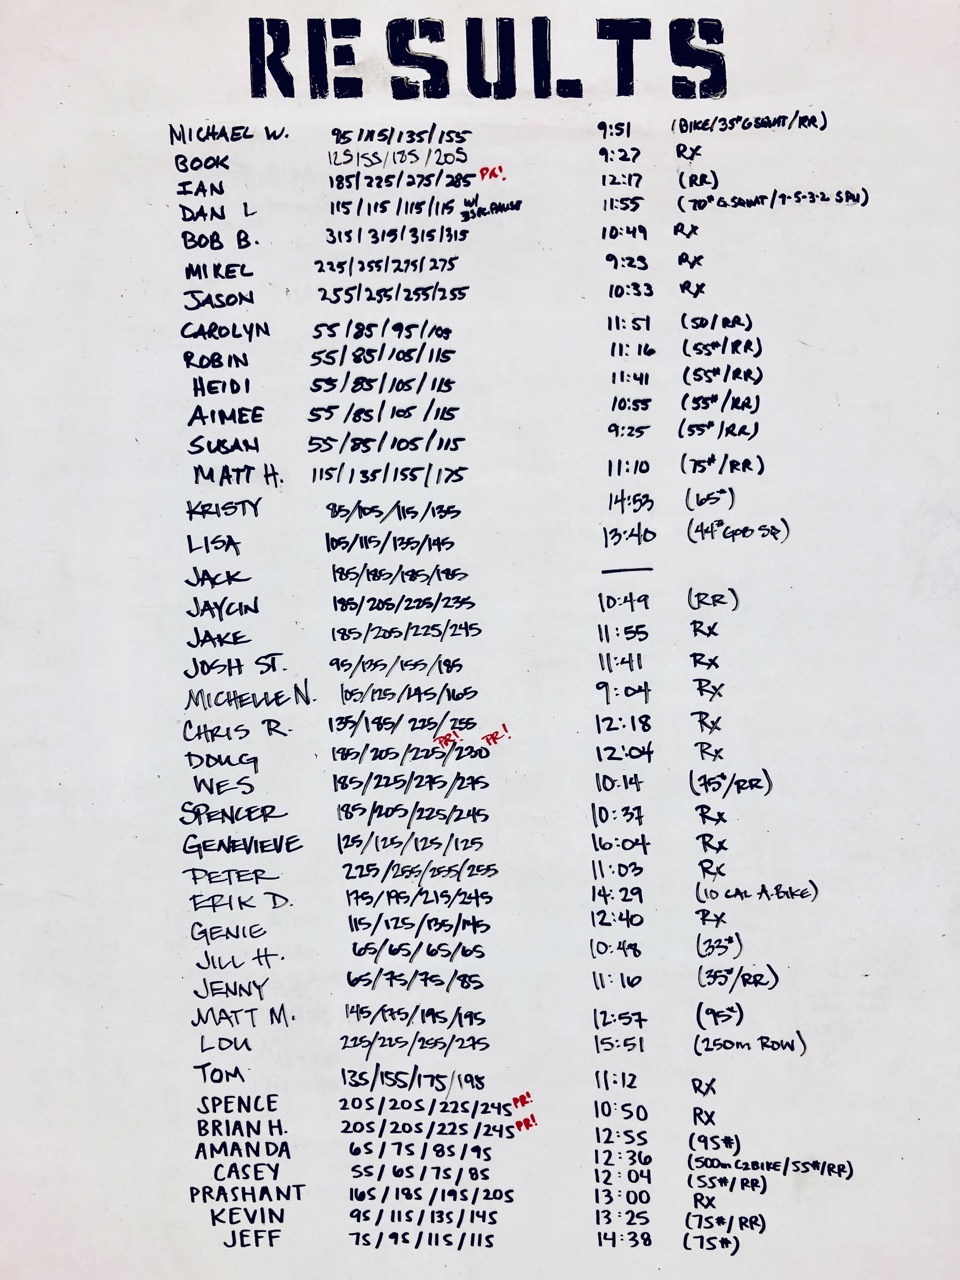 RESULTS
MICHAEL W. 95/115/135/155 9:51 (BIKE/35# G SQUAT/RR)
BOOK 125/155/185/205 9:27 Rx
IAN 185/225/275/285 PR! 12:17 (RR)
DAN L 115/115/115/115 W/ 3 SEC. PAUSE 11:55 (70# G. SQUAT/9-5-3-2 SPU)
BOB B. 315/315/315/315 10:49 Rx
MIKEL 225/255/275/275 9:23 Rx
JASON 255/255/255/255 10:33 Rx
CAROLYN 55/85/95/105 11:51 (50/RR)
ROBIN 55/85/105/115 11:16 (55#/RR)
HEIDI 55/85/105/115 11:41 (55#/RR)
AIMEE 55/85/105/115 10:55 (55#/RR)
SUSAN 55/85/105/115 9:25 (55#/RR)
MATT H. 115/135/155/175 11:10 (75#/RR)
KRISTY 85/105/115/135 14:53 (65#)
LISA 105/115/135/145 13:40 (44# GOB SQ)
JACK 185/185/185/185 —
JAYCIN 185/205/225/235 10:49 (RR)
JAKE 185/205/225/245 11:55 Rx
JOSH ST. 95/135/155/185 11:41 Rx
MICHELLE N. 105/125/145/165 9:04 Rx
CHRIS R. 135/185/225/255 12:18 Rx
DOUG 185/205/225 PR!/230 PR! 12:04 Rx
WES 185/225/275/275 10:14 (75#/RR)
SPENCER 185/205/225/245 10:37 Rx
GENEVIEVE 125/125/125/125 16:04 Rx
PETER 225/255/255/255 11:03 Rx
ERIK D. 175/195/215/245 14:29 (10 CAL A-BIKE)
GENIE 115/125/135/145 12:40 Rx
JILL H. 65/65/65/65 10:48 (33#)
JENNY 65/75/75/85 11:16 (35#/RR)
MATT M. 145/175/195/195 12:57 (95#)
LOU 225/225/255/275 15:51 (250m ROW)
TOM 135/155/175/195 11:12 RX
SPENCE 205/205/225/245 PR! 10:50 RX
BRIAN H. 205/205/225/245 PR! 12:55 (95#)
AMANDA 65/75/85/95 12:36 (500m C2BIKE/55#/RR)
CASEY 55/65/75/85 12:04 (55#/RR)
PRASHANT 165/185/195/205 13:00 RX
KEVIN 95/115/135/145 13:25 (75#/RR)
JEFF 75/95/115/115 14:38 (75#)